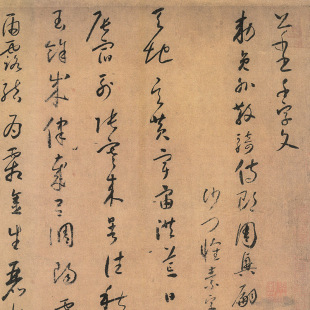 千字文
敕員外散騎侍郎周興嗣
沙門懷素書
天地玄黃宇宙洪荒日
宿列張寒來暑往秋
餘成律歲呂調陽雲
雨露結為霜金生麗